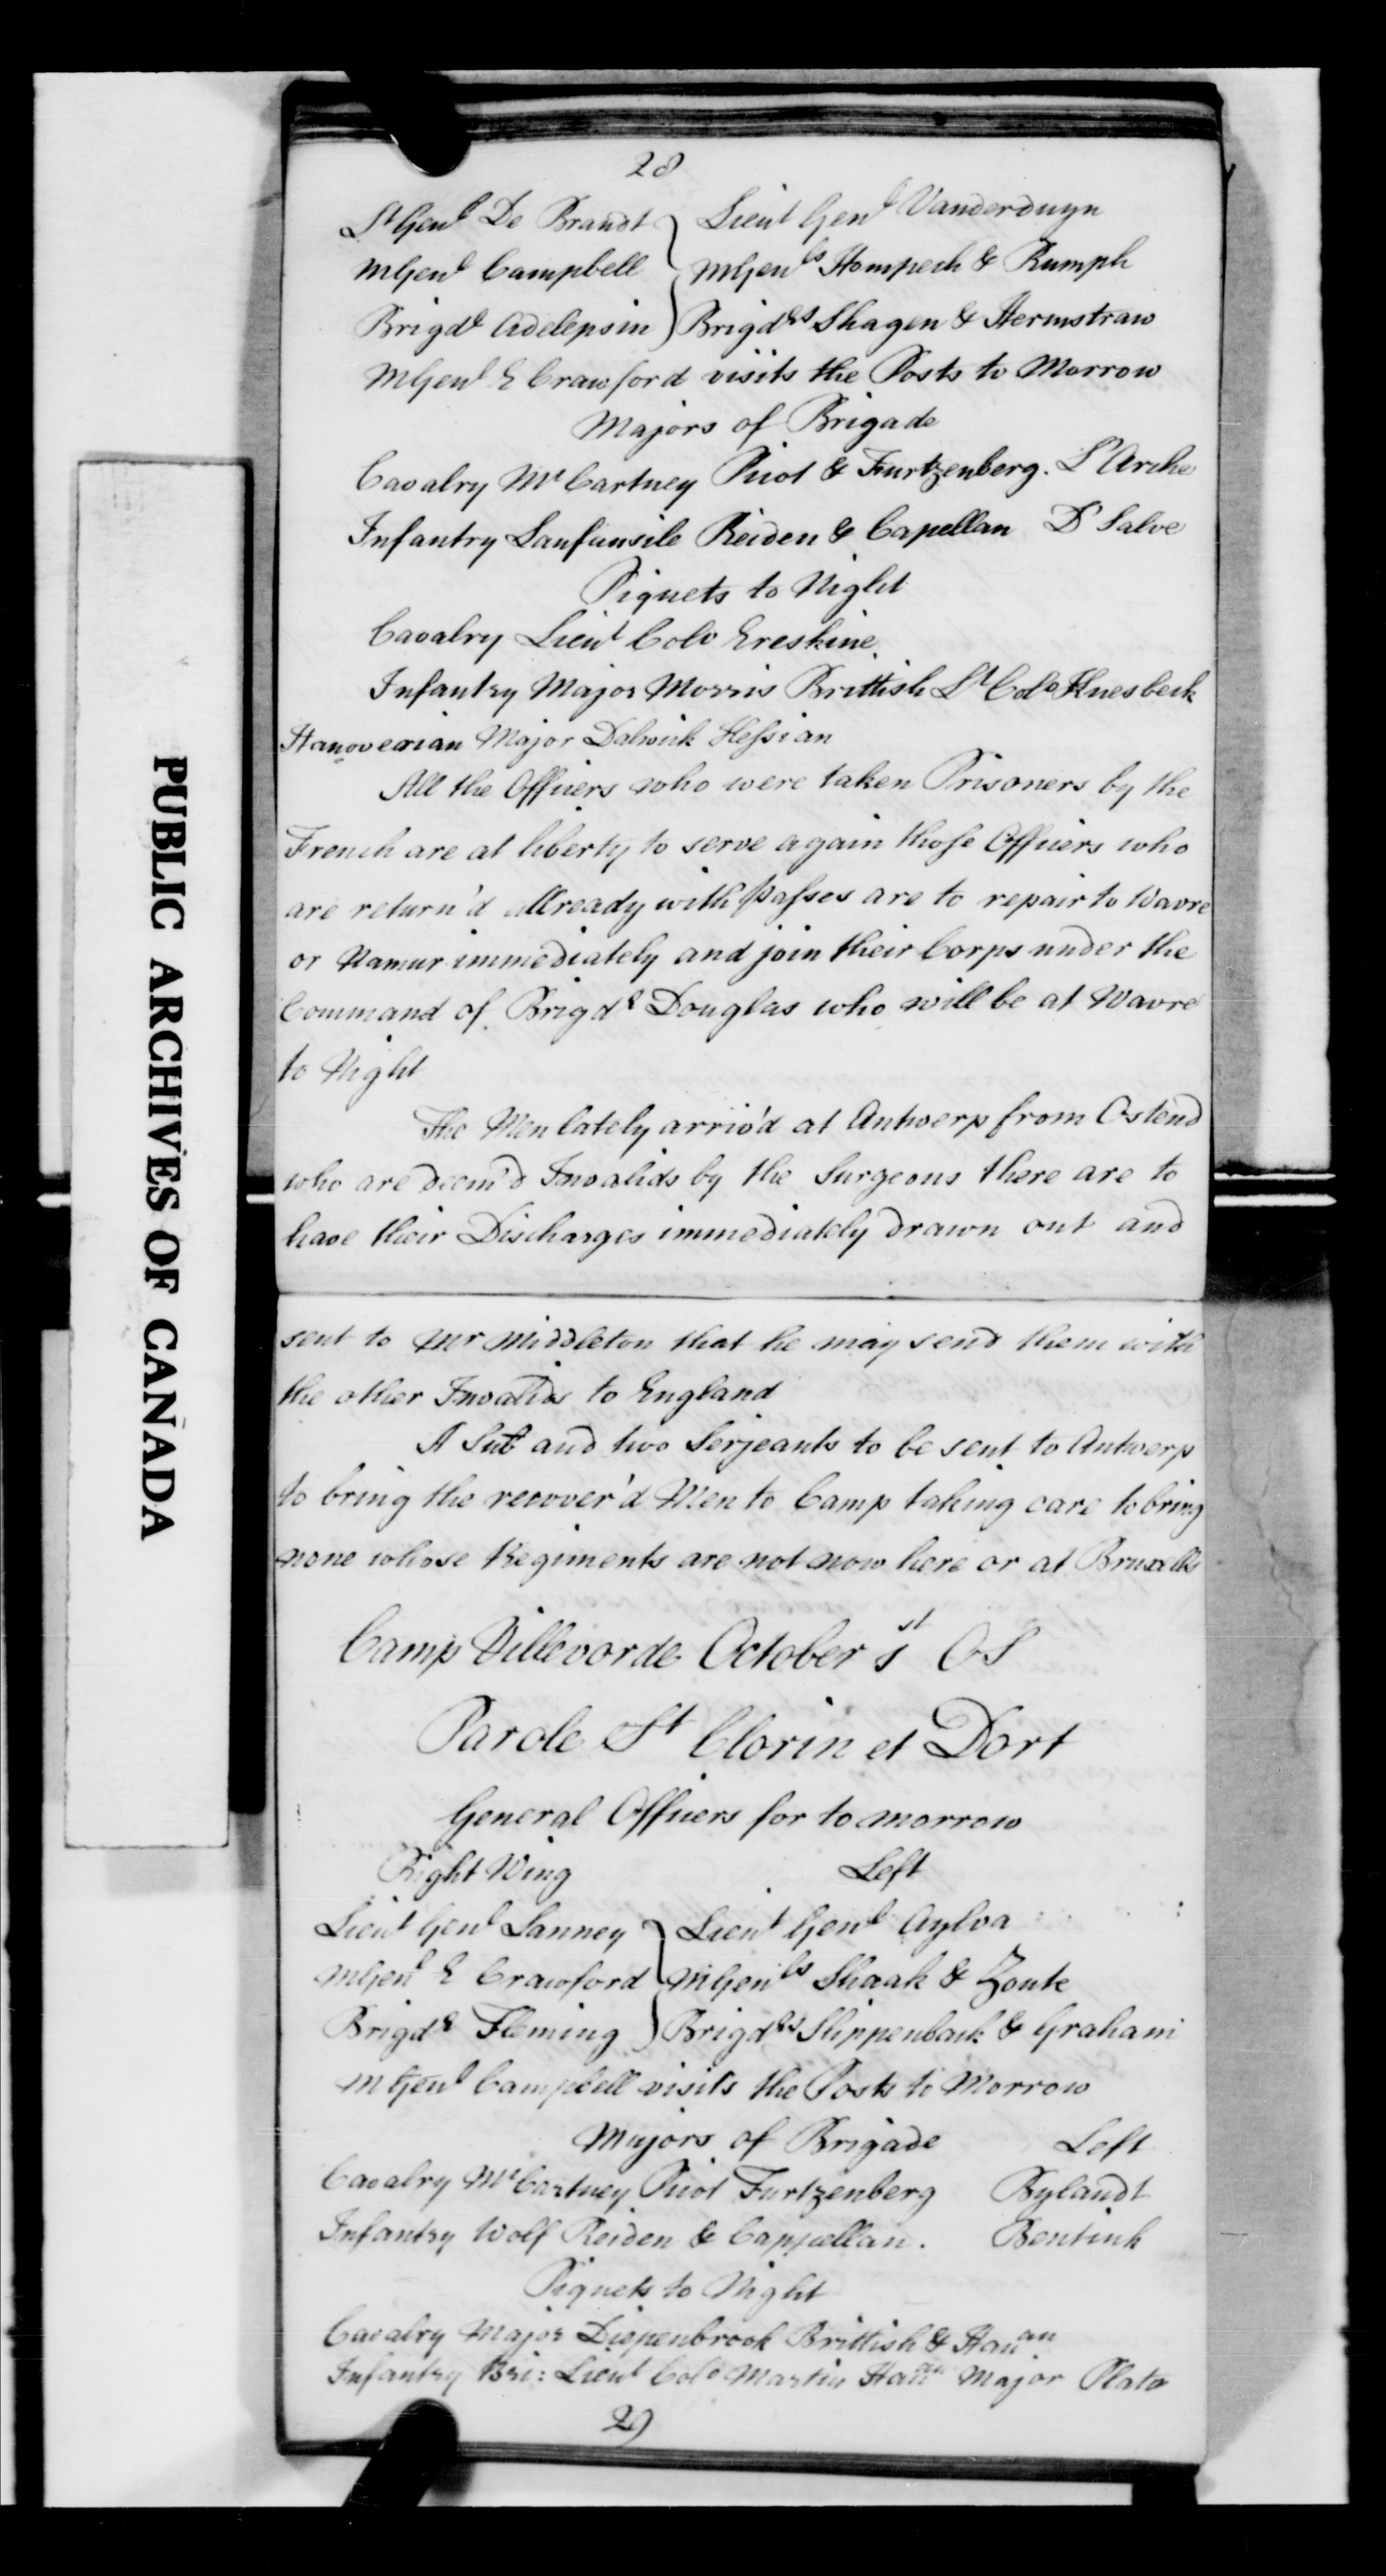 28
Lt Genl De Brandt } Lieut Genl Vanderduyn
MGenl Campbell } MGenls Hompech & Rumph
Brigdr Adelepsin } Brigdrs Shagen & Hermstraw
MGenl E Crawford visits the Posts to Morrow
Majors of Brigade
Cavalry McCartney Pirot & Furtzenberg. L'Arche
Infantry Lanfunsile Reiden & Capellan D'Salve
Piquets to Night
Cavalry Lieut Colo Ereskine
Infantry Major Morris Brittish Lt Colo Knesbeck
Hanoverian Major Dalwick Hessian
All the Officers who were taken Prisoners by the
French are at liberty to serve again those Officers who
are return'd allready with passes are to repair to Wavre
or Namur immediately and join their Corps under the
Command of Brigdr Douglas who will be at Wavre
to Night
The Men lately arriv'd at Antwerp from Ostend
who are deem'd Invalids by the Surgeons there are to
have their Discharges immediately drawn out and
sent to Mr Middleton that he may send them with
the other Invalids to England
A Sub and two Serjeants to be sent to Antwerp
to bring the recover'd Men to Camp taking care to bring
none whose Regiments are not now here or at Bruxells
Camp Villevorde October 1st OS
Parole St Clorin et Dort
General Officers for to morrow
Right Wing Left
Lieut Genl Sanney } Lieut Genl Aylva
MGenl E Crawford } MGenls Shaak & Zoute
Brigdr Fleming } Brigdrs Slippenback & Graham
MGenl Campbell visits the Posts to Morrow
Majors of Brigade Left
Cavalry McCartney Pirot Furtzenberg Bylandt
Infantry Wolf Reiden & Cappellan. Bentink
Piquets to Night
Cavalry Major Diepenbrook Brittish & Hanan
Infantry Bri: Lieut Colo Martin Hanan Major Plato
29
PUBLIC ARCHIVES OF CANADA